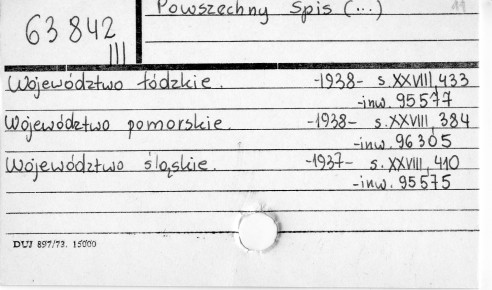 Powszechny Spis (...) 11
63 842
III
Województwo łódzkie. -1938- s. XXVIII, 433
-inw. 95577
Województwo pomorskie. -1938- s. XXVIII, 384
-inw. 96305
Województwo śląskie. -1937- s. XXVIII, 410
-inw. 95575
DUJ 897/73. 15000